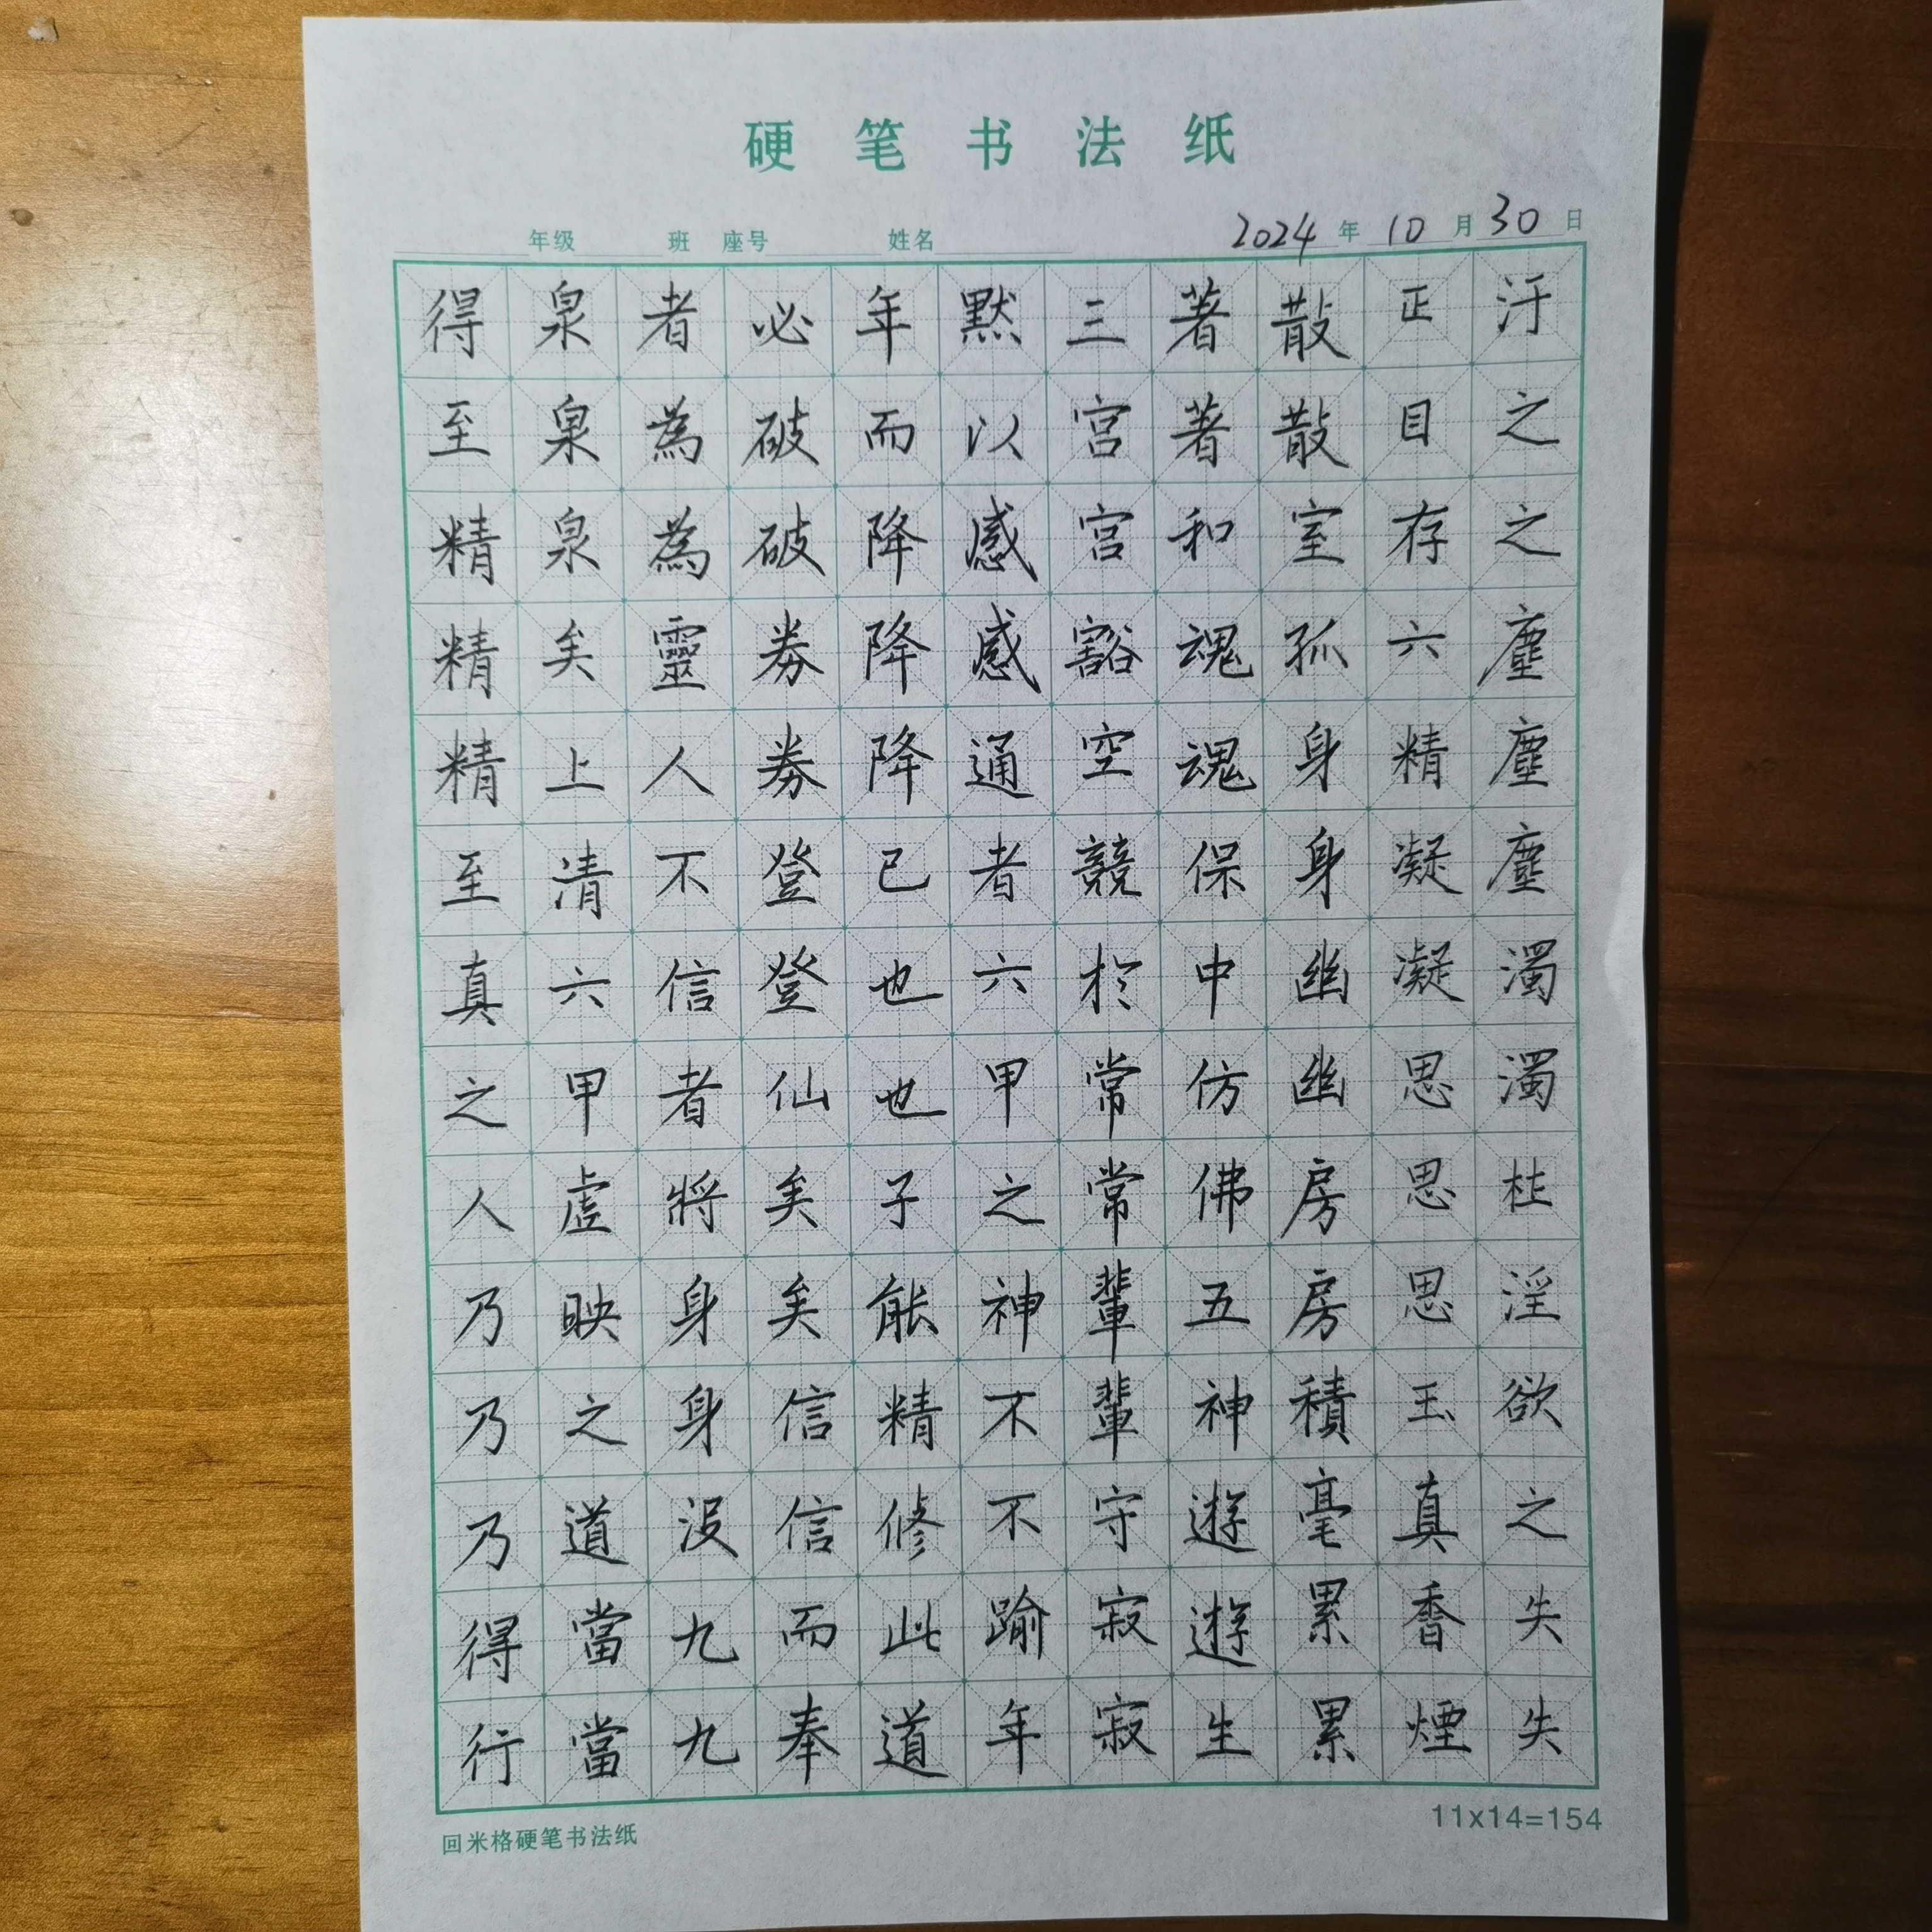 硬笔书法纸
年级 班 座号 姓名 2024年10月30日
汙之之塵塵塵濁濁杜淫欲之失失
正目存六精凝凝思思思玉真香煙
散散室孤身身幽幽房房積毫累累
著著和魂魂保中仿佛五神遊遊生
三宫宫豁空競於常常輩輩守寂寂
默以感感通者六甲之神不不踰年
年而降降降已也也子能精修此道
必破破券券登登仙矣矣信信而奉
者為為靈人不信者將身身没九九
泉泉泉矣上清六甲虛映之道當當
得至精精精至真之人乃乃乃得行
回米格硬笔书法纸
11x14=154